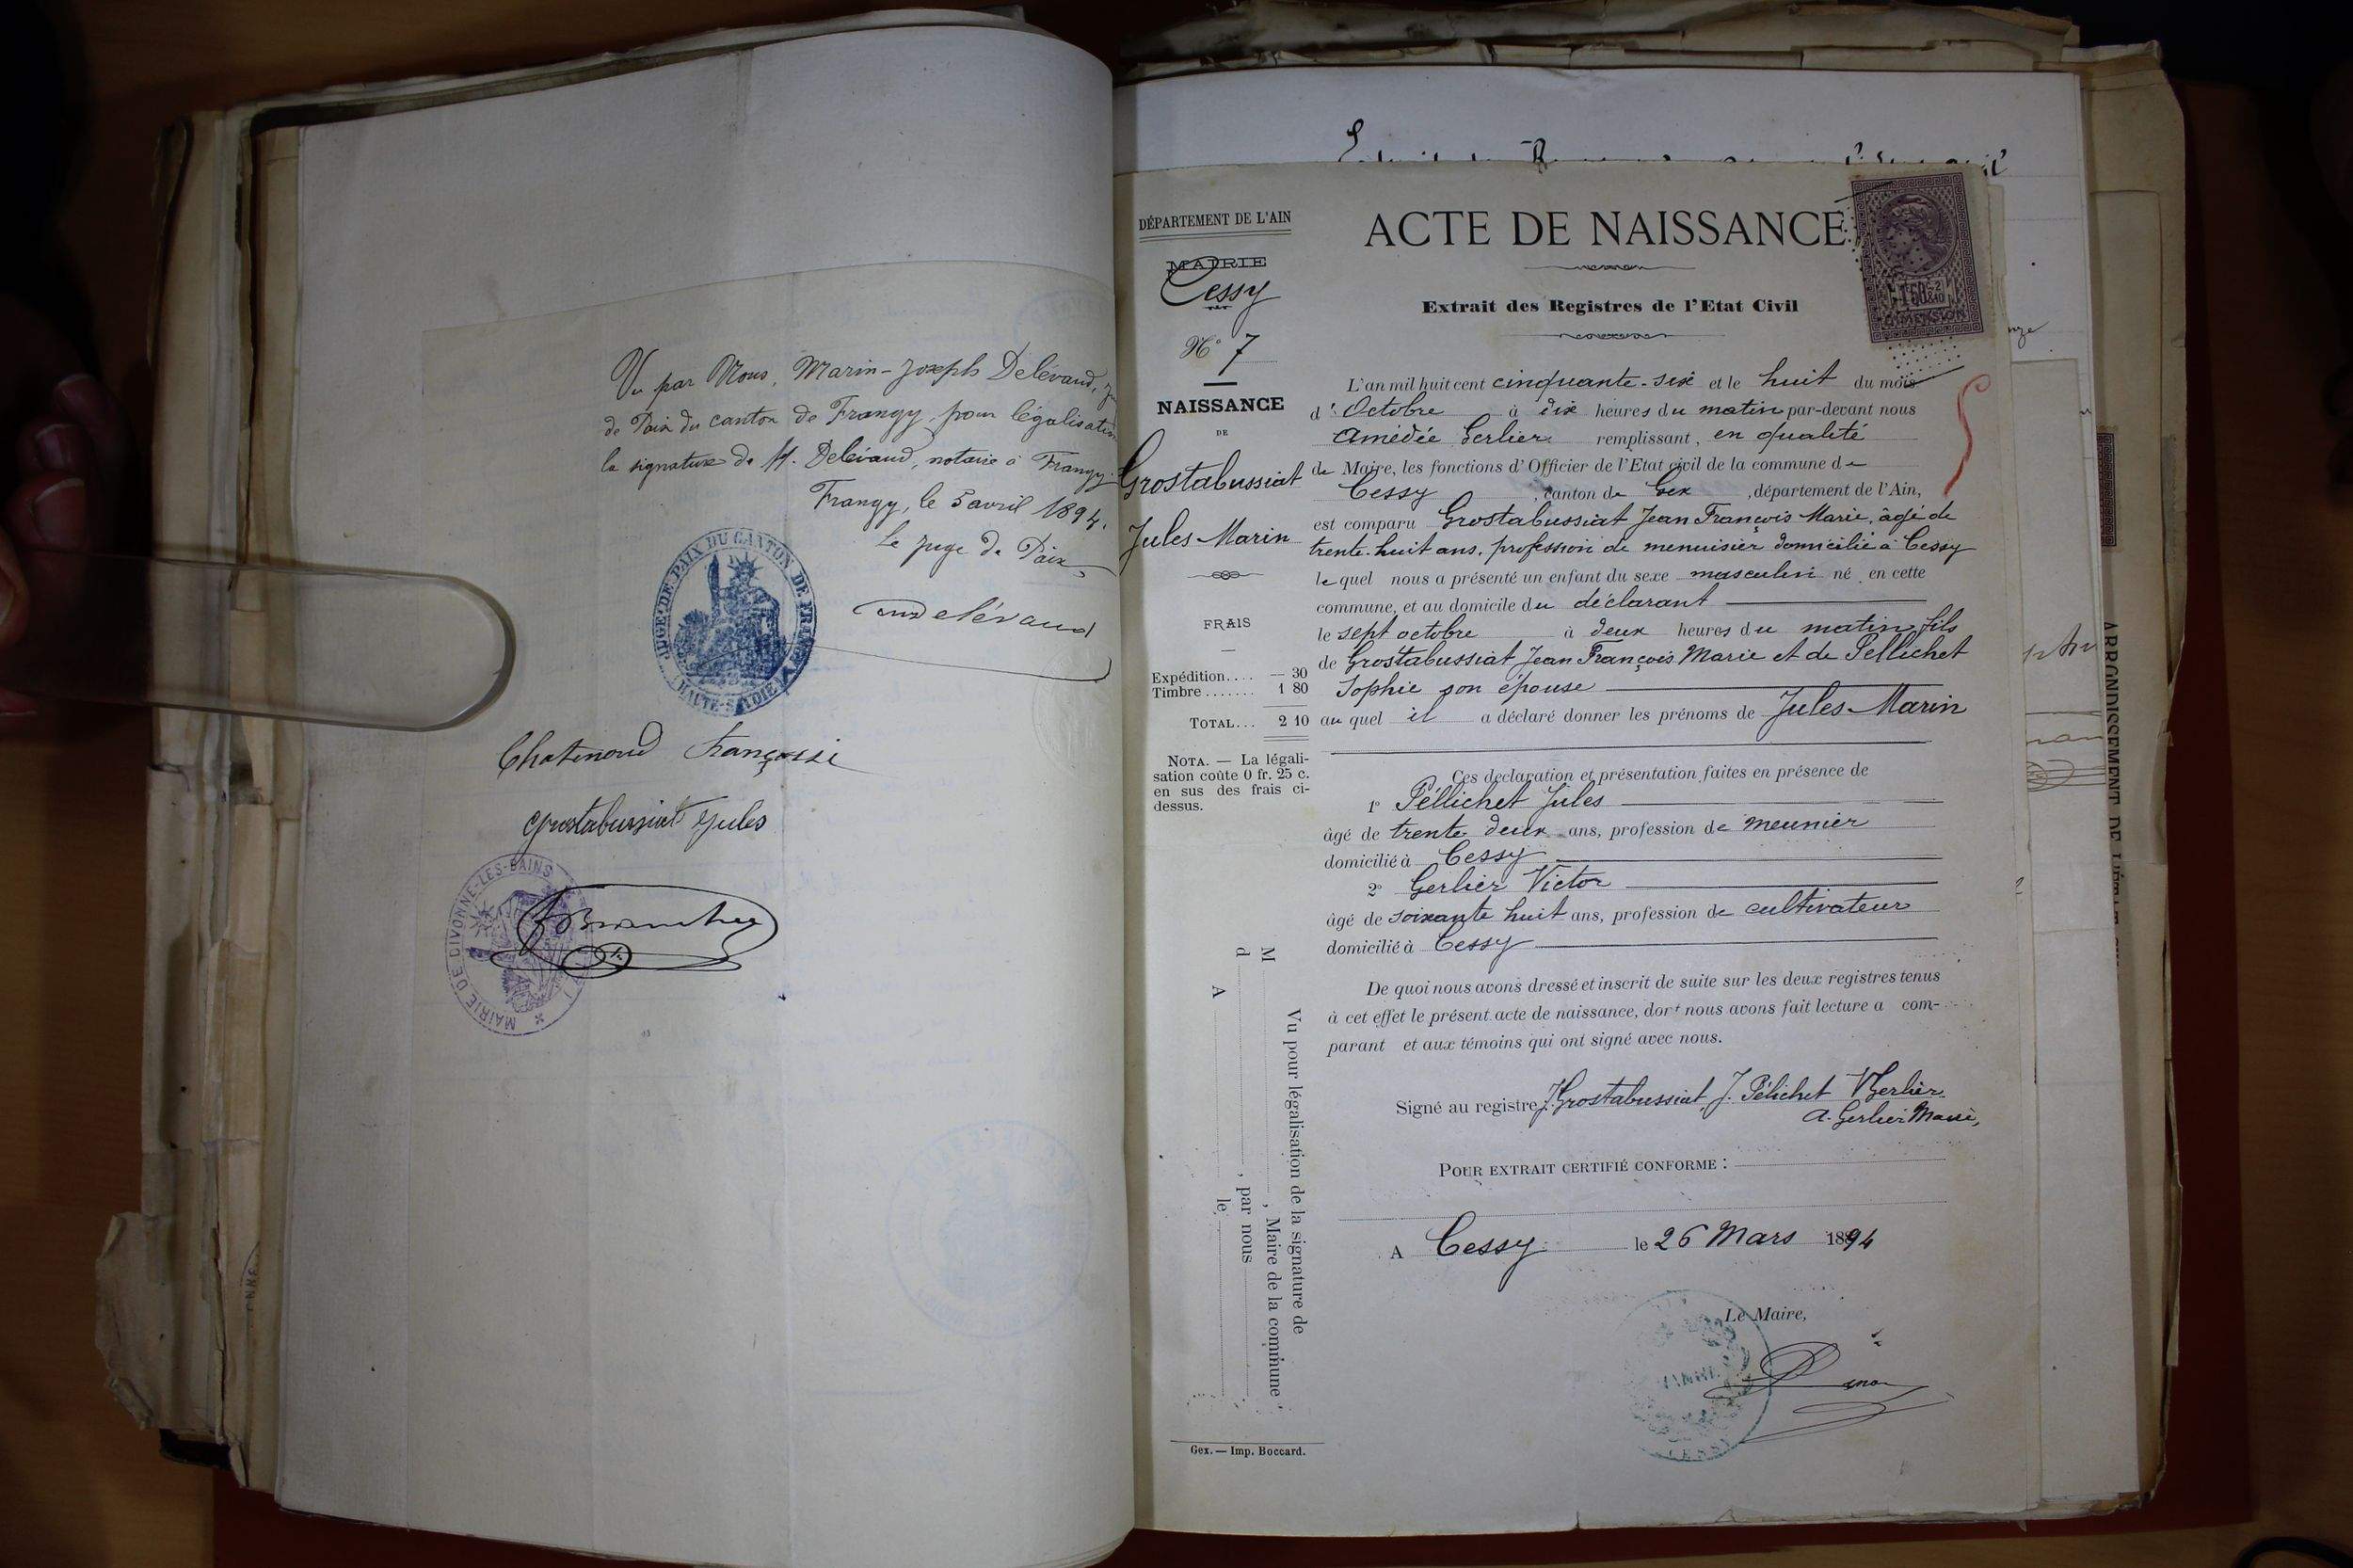 Vu par Nous, Marin-Joseph Delévaud,
de Paix du canton de Frangy, pour légalisation
la signature de M. Delévaud, notaire à Frangy.
Frangy, le 5 avril 1894.
Le Juge de Paix,
JUGE DE PAIX DU CANTON DE FRANGY
HAUTE-SAVOIE
Delévaud
Chatenoud Françoise
Grostabussiat Jules
MAIRIE DE DIVONNE-LES-BAINS
DÉPARTEMENT DE L'AIN
MAIRIE
Cessy
N° 7
NAISSANCE
DE
Grostabussiat
Jules-Marin
FRAIS
Expédition.... — 30
Timbre....... 1 80
TOTAL... 2 10
NOTA. — La légali-
sation coûte 0 fr. 25 c.
en sus des frais ci-
dessus.
Vu pour légalisation de la signature de
M , Maire de la commune
d , par nous
A le
Gex. — Imp. Boccard.
ACTE DE NAISSANCE
Extrait des Registres de l'Etat Civil
L'an mil huit cent cinquante-six et le huit du mois
d'Octobre à dix heures du matin par-devant nous
Amédée Gerlier remplissant, en qualité
de Maire, les fonctions d'Officier de l'Etat civil de la commune de
Cessy, canton de Gex, département de l'Ain,
est comparu Grostabussiat Jean François Marie, âgé de
trente-huit ans, profession de menuisier domicilié à Cessy
lequel nous a présenté un enfant du sexe masculin né en cette
commune, et au domicile du déclarant
le sept octobre à deux heures du matin, fils
de Grostabussiat Jean François Marie et de Pellichet
Sophie son épouse
auquel il a déclaré donner les prénoms de Jules-Marin
Ces declaration et présentation faites en présence de
1° Péllichet Jules
âgé de trente deux ans, profession de meunier
domicilié à Cessy
2° Gerlier Victor
âgé de soixante huit ans, profession de cultivateur
domicilié à Cessy
De quoi nous avons dressé et inscrit de suite sur les deux registres tenus
à cet effet le présent acte de naissance, dont nous avons fait lecture a com-
parant et aux témoins qui ont signé avec nous.
Signé au registre J. Grostabussiat, J. Pélichet V Gerlier
A. Gerlier Maire,
POUR EXTRAIT CERTIFIÉ CONFORME :
A Cessy le 26 Mars 1894
Le Maire,
CESSY
1 F 50
DIMENSION
ARRONDISSEMENT DE